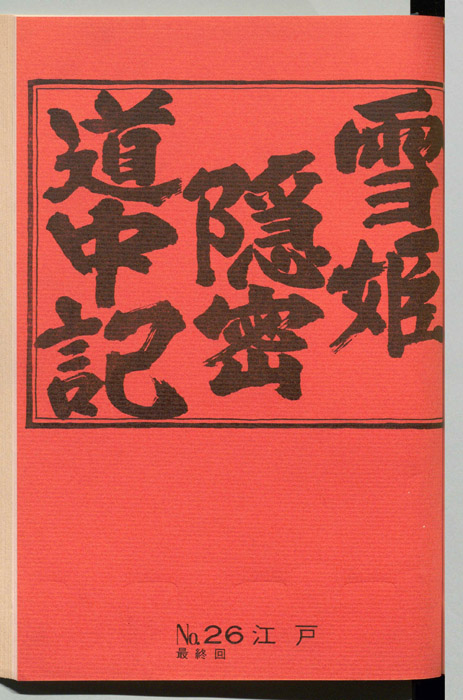 雪姫
隠密
道中記
No.26 江戸
最終回